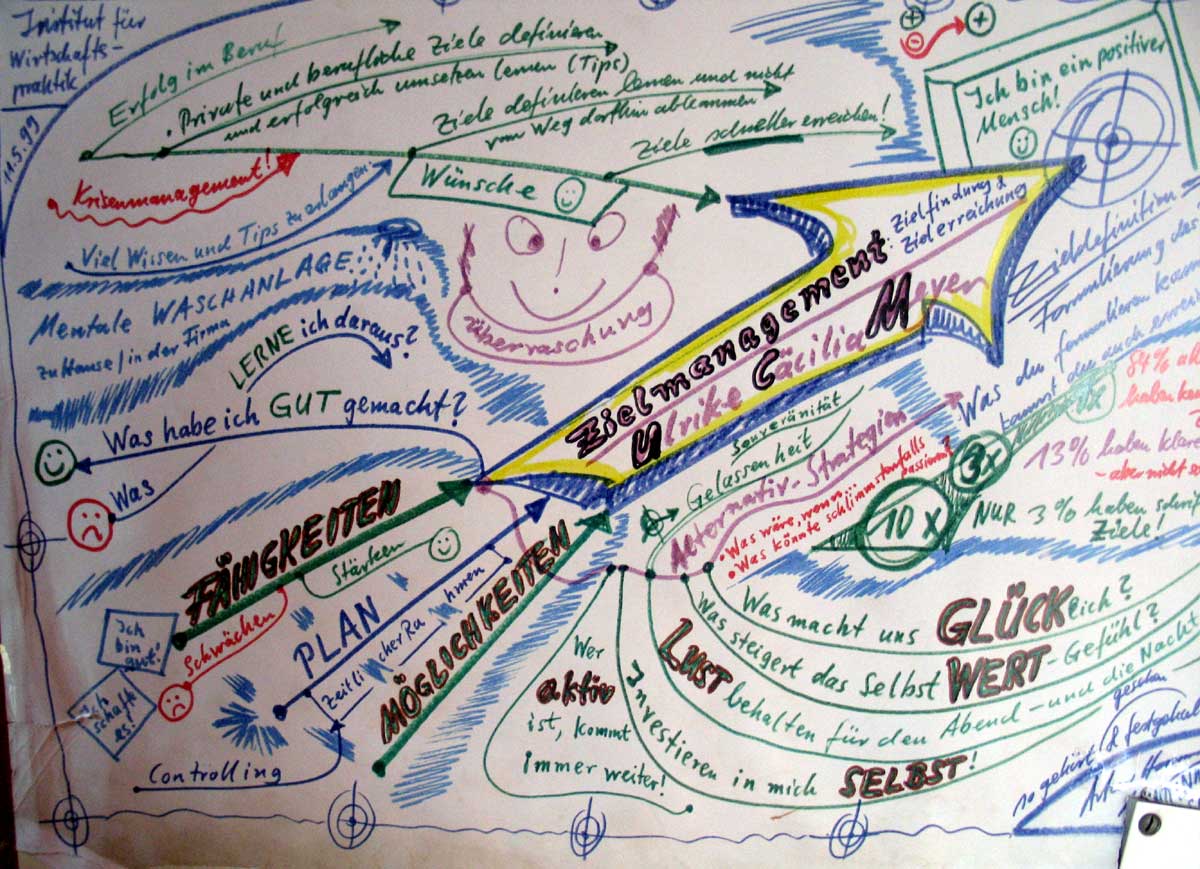 Institut für
Wirtschafts-
praktik
11.5.99
Erfolg im Beruf
• Private und berufliche Ziele definieren
und erfolgreich umsetzen lernen (Tips)
Ziele definieren lernen und nicht
vom Weg dorthin abkommen
Ziele schneller erreichen!
Ich bin ein positiver
Mensch!
Krisenmanagement!
Wünsche
Viel Wissen und Tips zu erlangen
Mentale WASCHANLAGE
zu Hause/in der Firma
überraschung
LERNE ich daraus?
Was habe ich GUT gemacht?
Was
Zielmanagement
: Zielfindung &
Zielerreichung
Ulrike Cäcilia Meyer
Zieldefinition
Formulierung des
Was du formulieren kannst
kannst du auch errei
84% a
haben ke
3x
10 x
13% haben klar
- aber nicht s
NUR 3% haben schri
Ziele!
Souveränität
Gelassenheit
Alternativ-Strategien
• Was wäre, wenn
• Was könnte schlimmstenfalls
passieren?
FÄIGKEITEN
Stärken
Schwächen
Ich
bin
gut!
Ich
schaff
es!
PLAN
Zeitli cher Ra hmen
Controlling
MÖGLICHKEITEN
Wer
aktiv
ist, kommt
immer weiter!
Was macht uns GLÜCKlich?
Was steigert das Selbst WERT-Gefühl?
LUST behalten für den Abend- und die Nacht
Investieren in mich SELBST!
gesehen
so gehört & festgehal